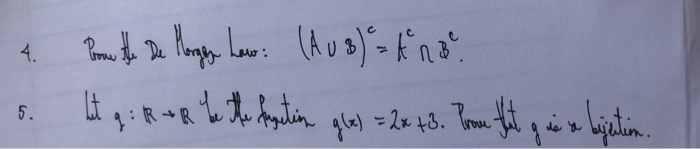 4. Prove the De Morgan Law: (A ∪ B)ᶜ = Aᶜ ∩ Bᶜ.
5. Let g : ℝ → ℝ be the function g(x) = 2x + 3. Prove that g is a bijection.